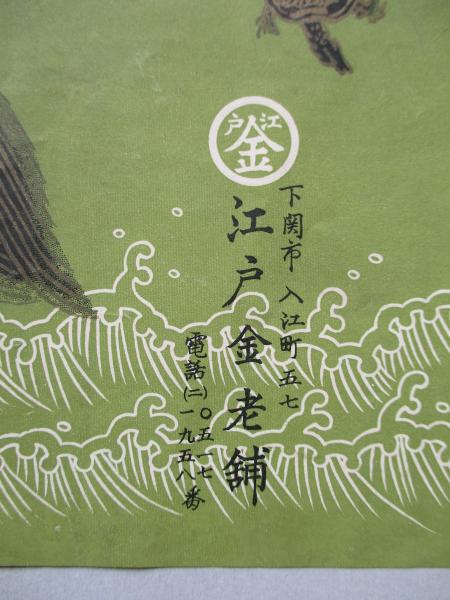 江戸
金
下関市入江町五七
江戸金老舖
電話(二)〇五一七
一九五八番